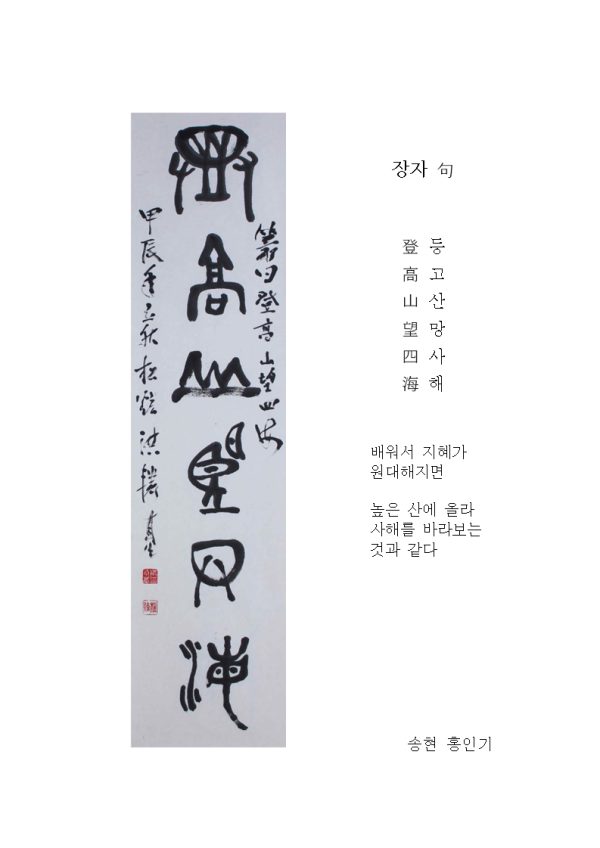 登高山望四海
登高山望四海
甲辰年立秋松
장자 句
登 등
高 고
山 산
望 망
四 사
海 해
배워서 지혜가
원대해지면
높은 산에 올라
사해를 바라보는
것과 같다
송현 홍인기